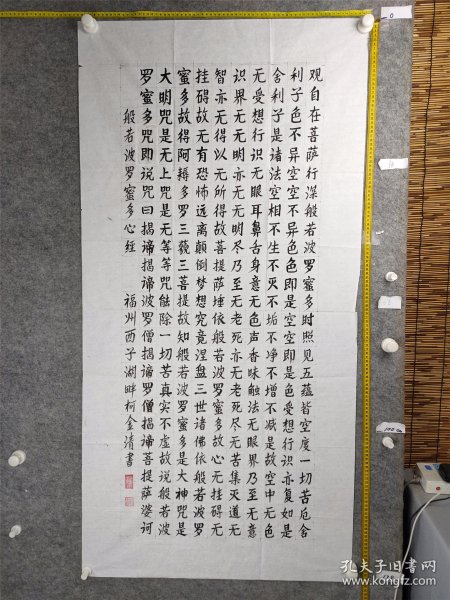 观自在菩萨行深般若波罗蜜多时照见五蕴皆空度一切苦厄舍
利子色不异空空不异色色即是空空即是色受想行识亦复如是
舍利子是诸法空相不生不灭不垢不净不增不减是故空中无色
无受想行识无眼耳鼻舌身意无色声香味触法无眼界乃至无意
识界无无明亦无无明尽乃至无老死亦无老死尽无苦集灭道无
智亦无得以无所得故菩提萨埵依般若波罗蜜多故心无挂碍无
挂碍故无有恐怖远离颠倒梦想究竟涅盘三世诸佛依般若波罗
蜜多故得阿耨多罗三藐三菩提故知般若波罗蜜多是大神咒是
大明咒是无上咒是无等等咒能除一切苦真实不虚故说般若波
罗蜜多咒即说咒曰揭谛揭谛波罗僧揭谛罗僧揭谛菩提萨婆诃
般若波罗蜜多心经 福州西子湖畔柯金清书
孔夫子旧书网
www.kongfz.com